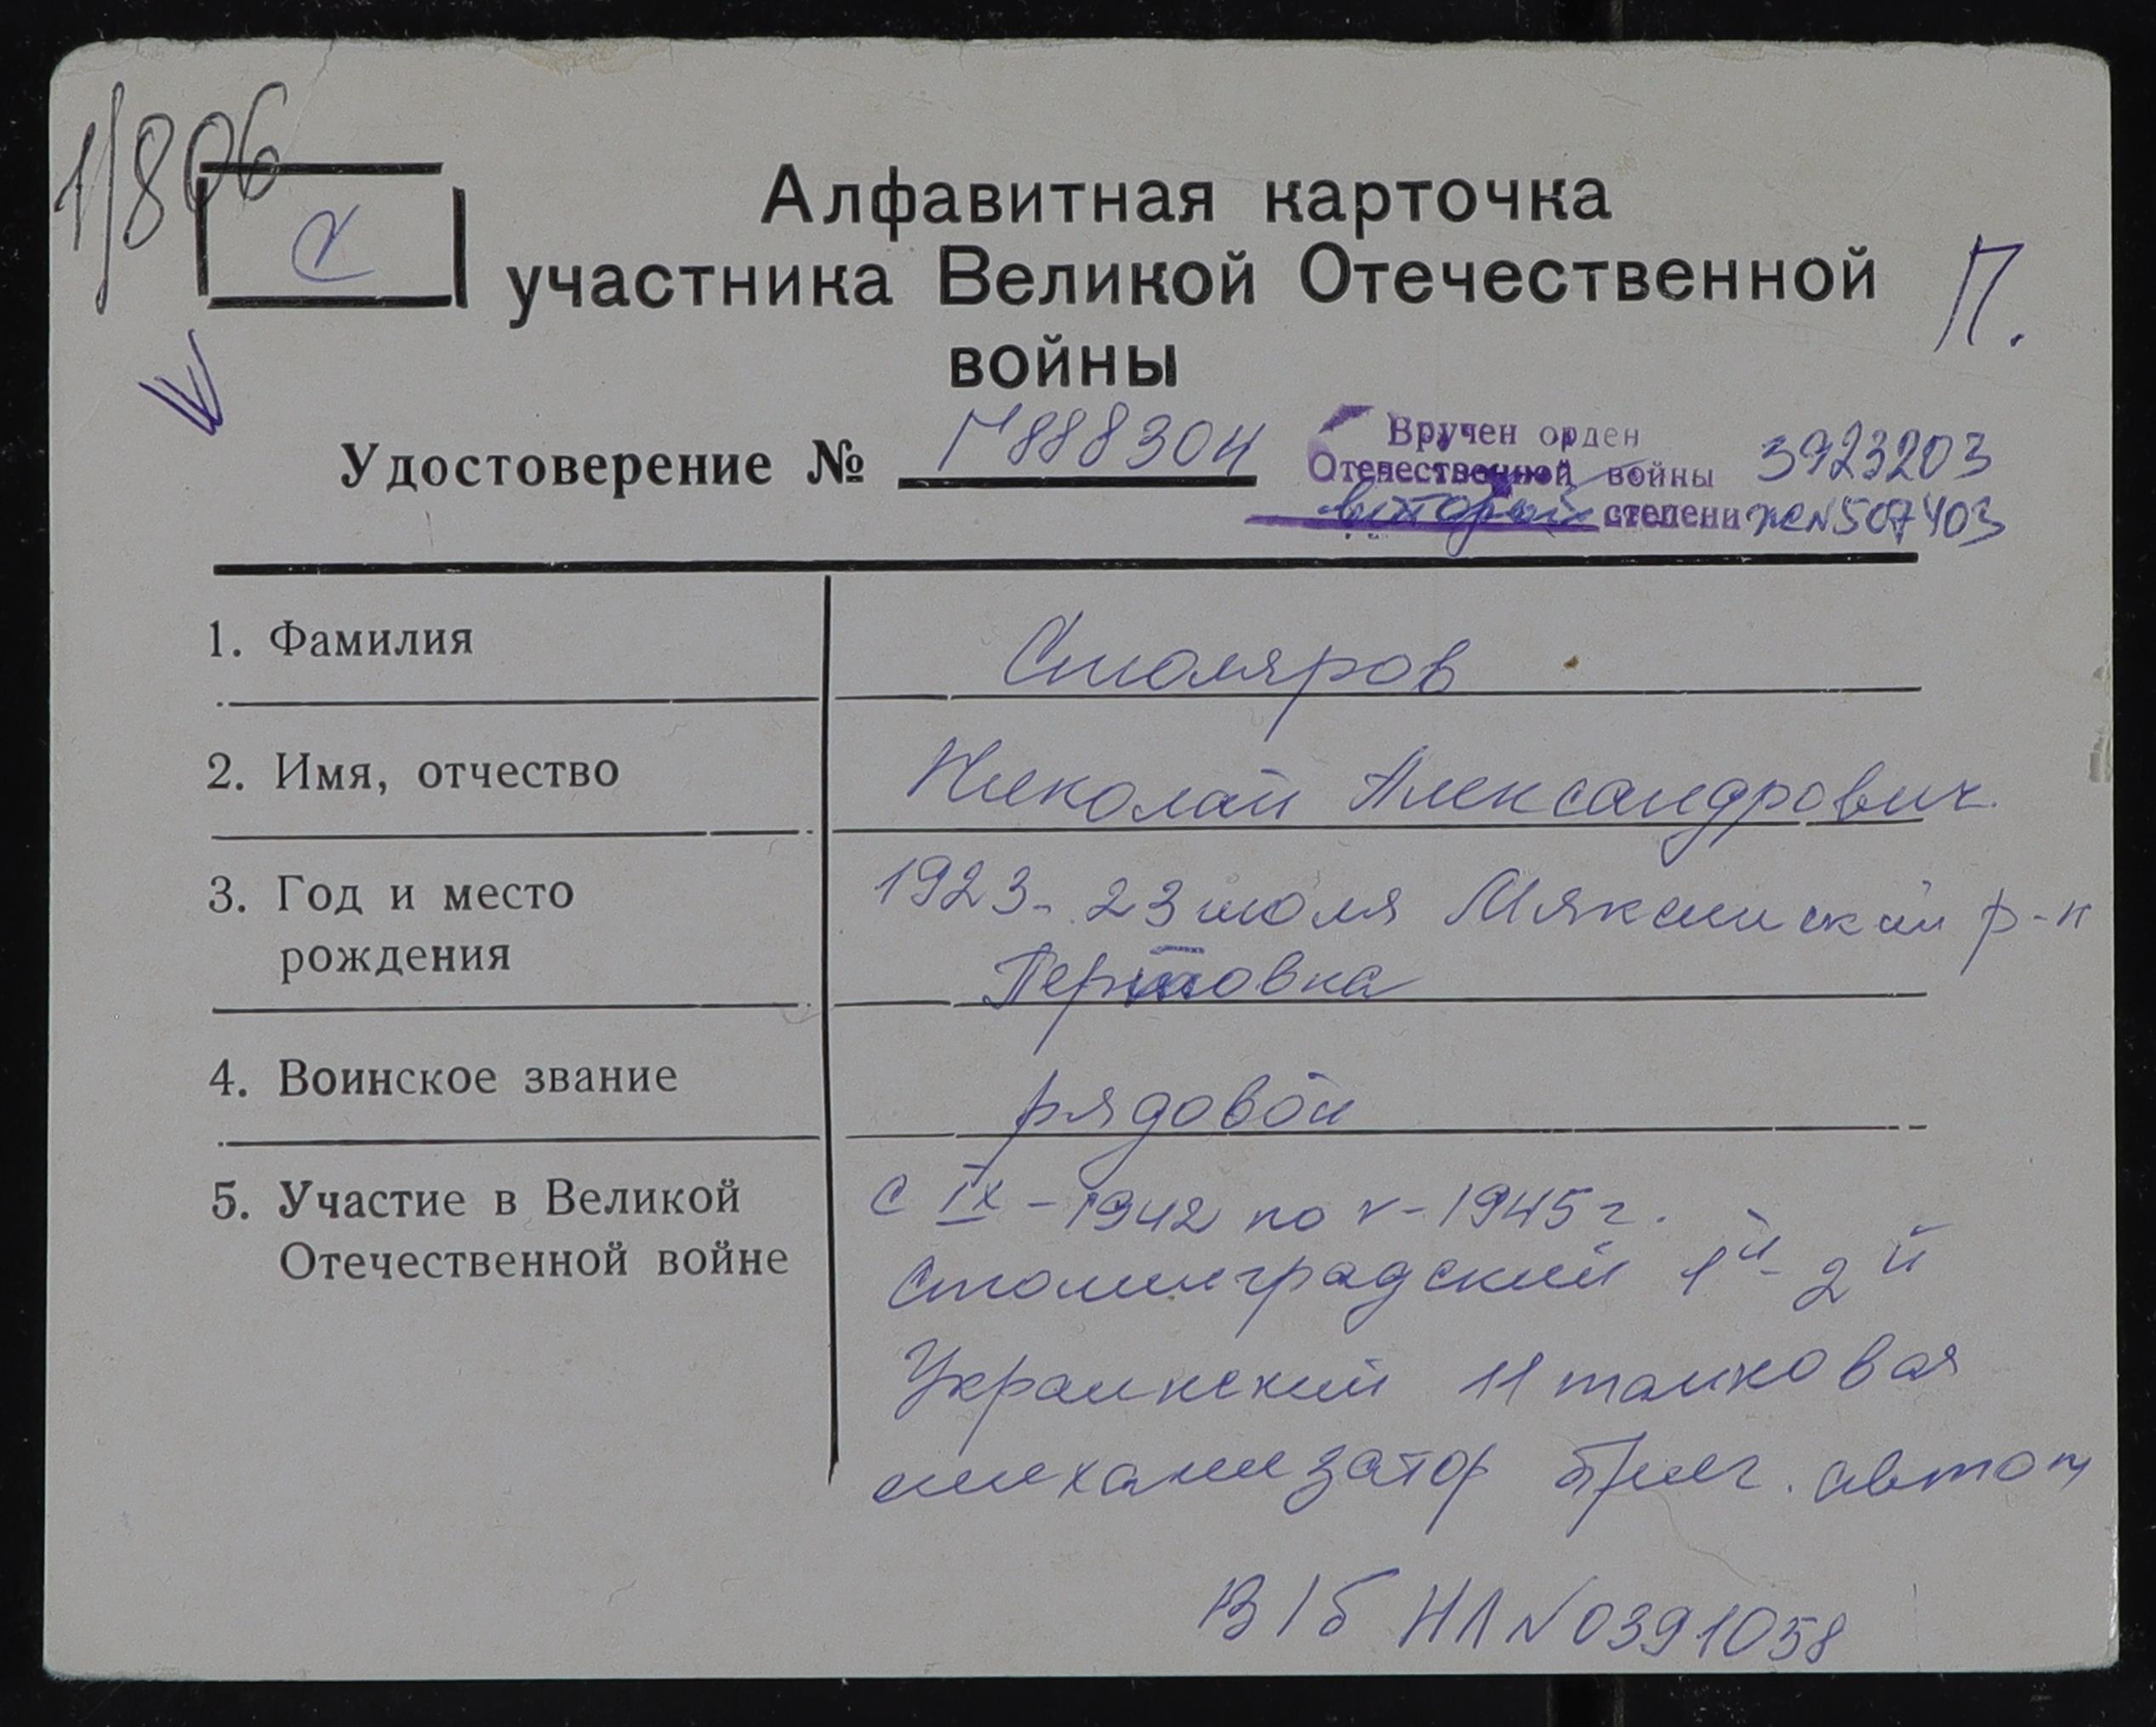 1/806
С
Алфавитная карточка
участника Великой Отечественной
войны
П.
Удостоверение № Г 888304
Вручен орден
Отечественной войны 3923203
второй степени жN507403
1. Фамилия Столяров
2. Имя, отчество Николай Александрович
3. Год и место рождения 1923- 23 июля Мяксинский р-н
Пертовка
4. Воинское звание рядовой
5. Участие в Великой Отечественной войне с IX-1942 по V-1945г.
Сталинградский 1й- 2й
Украинский 11 танковая
механизатор бриг. автом
В/б НЛ N0391058